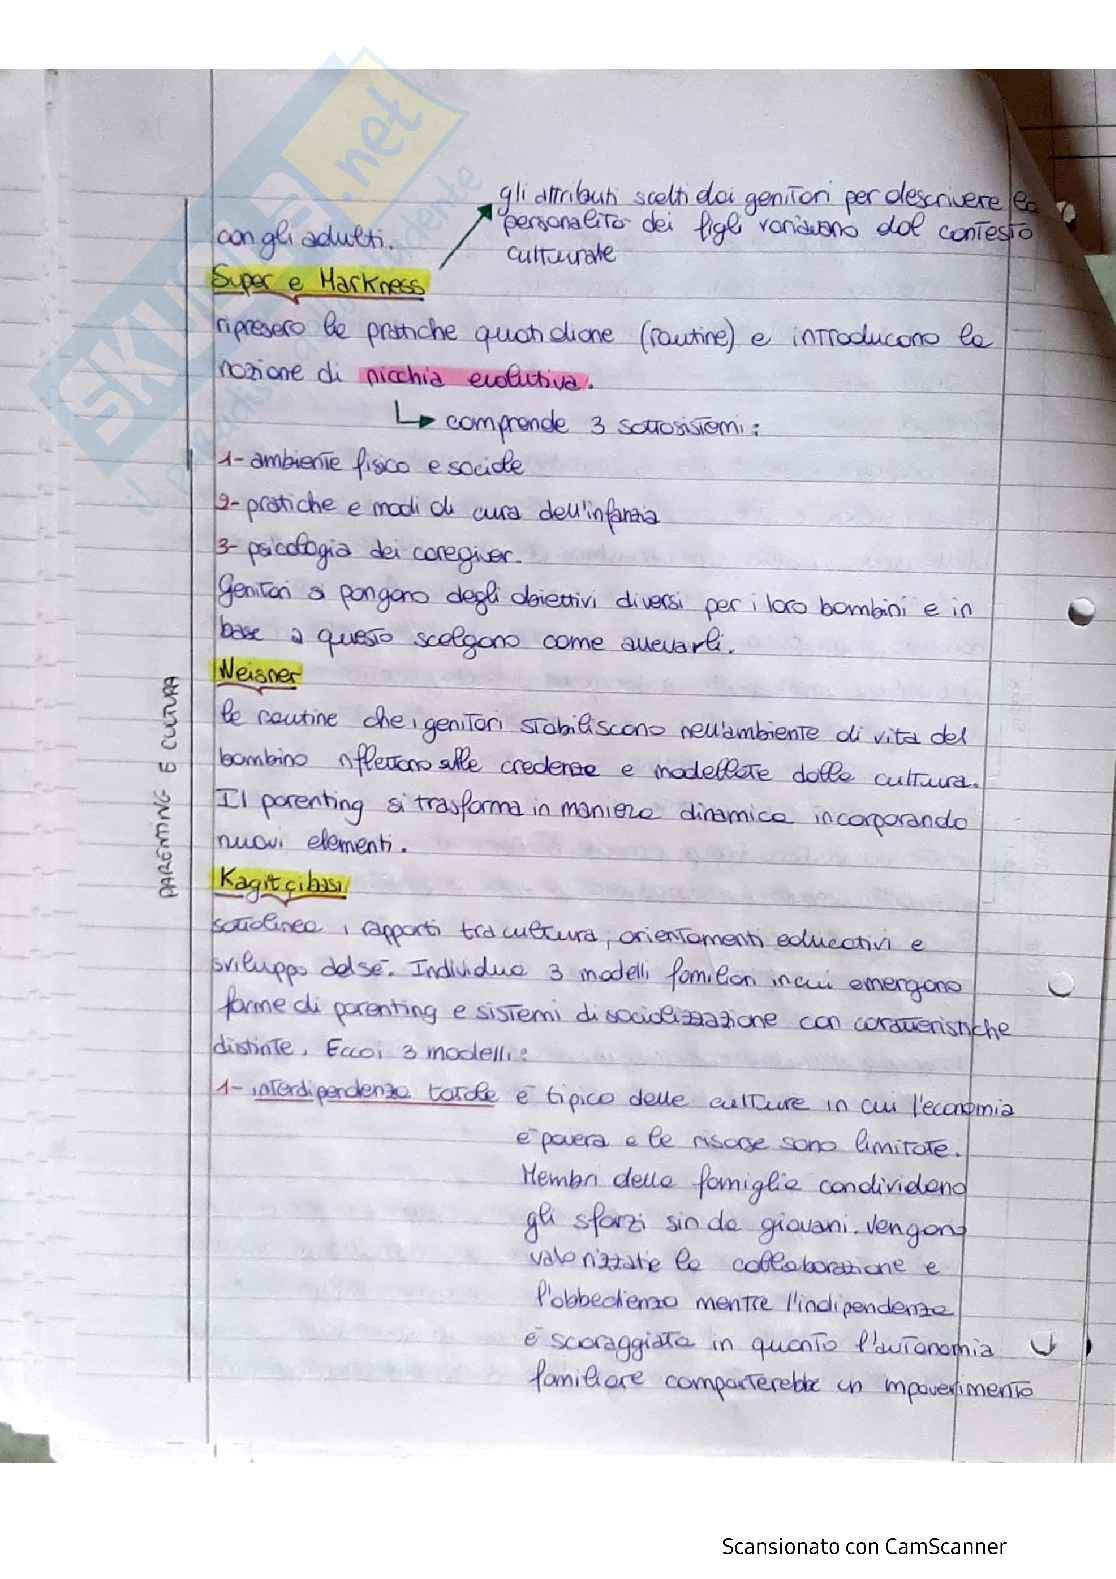 gli attributi scelti dai genitori per descrivere la
personalità dei figli variavano dal contesto
culturale
con gli adulti.
Super e Harkness
ripresero le pratiche quotidiane (routine) e introducono la
nozione di nicchia evolutiva.
comprende 3 sottosistemi:
1- ambiente fisico e sociale
2- pratiche e modi di cura dell'infanzia
3- psicologia dei caregiver.
Genitori si pongono degli obiettivi diversi per i loro bambini e in
base a questo scelgono come allevarli.
Weisner
le routine che i genitori stabiliscono nell'ambiente di vita del
bambino riflettono sulle credenze e modellate dalla cultura.
Il parenting si trasforma in maniera dinamica incorporando
nuovi elementi.
PARENTING E CULTURA
Kagitçibasi
sottolinea i rapporti tra cultura, orientamenti educativi e
sviluppo del sé. Individua 3 modelli familiari in cui emergono
forme di parenting e sistemi di socializzazione con caratteristiche
distinte. Ecco i 3 modelli:
1- interdipendenza totale è tipico delle culture in cui l'economia
è povera e le risorse sono limitate.
Membri della famiglia condividono
gli sforzi sin da giovani. Vengono
valorizzate la collaborazione e
l'obbedienza mentre l'indipendenza
è scoraggiata in quanto l'autonomia
familiare comporterebbe un impoverimento
SKUOLA.net
Scansionato con CamScanner